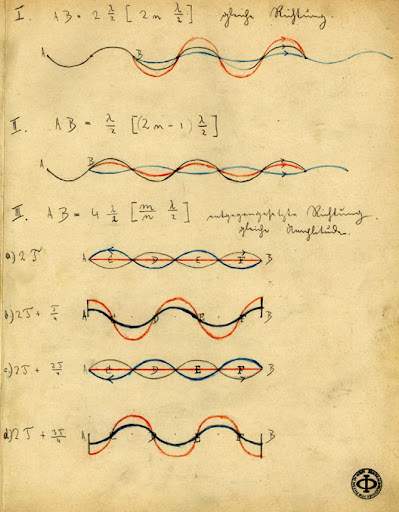 I. AB = 2 λ/2 [2n λ/2] gleiche Richtung.
A B
II. AB = λ/2 [(2n-1) λ/2]
A B
III. AB = 4 λ/2 [m/n λ/2] entgegengesetzte Richtung.
gleiche Amplitude.
a) 2T A C D E F B
b) 2T + T/4 A C D E F B
c) 2T + 2T/4 A C D E F B
d) 2T + 3T/4 A C D E F B
Φ